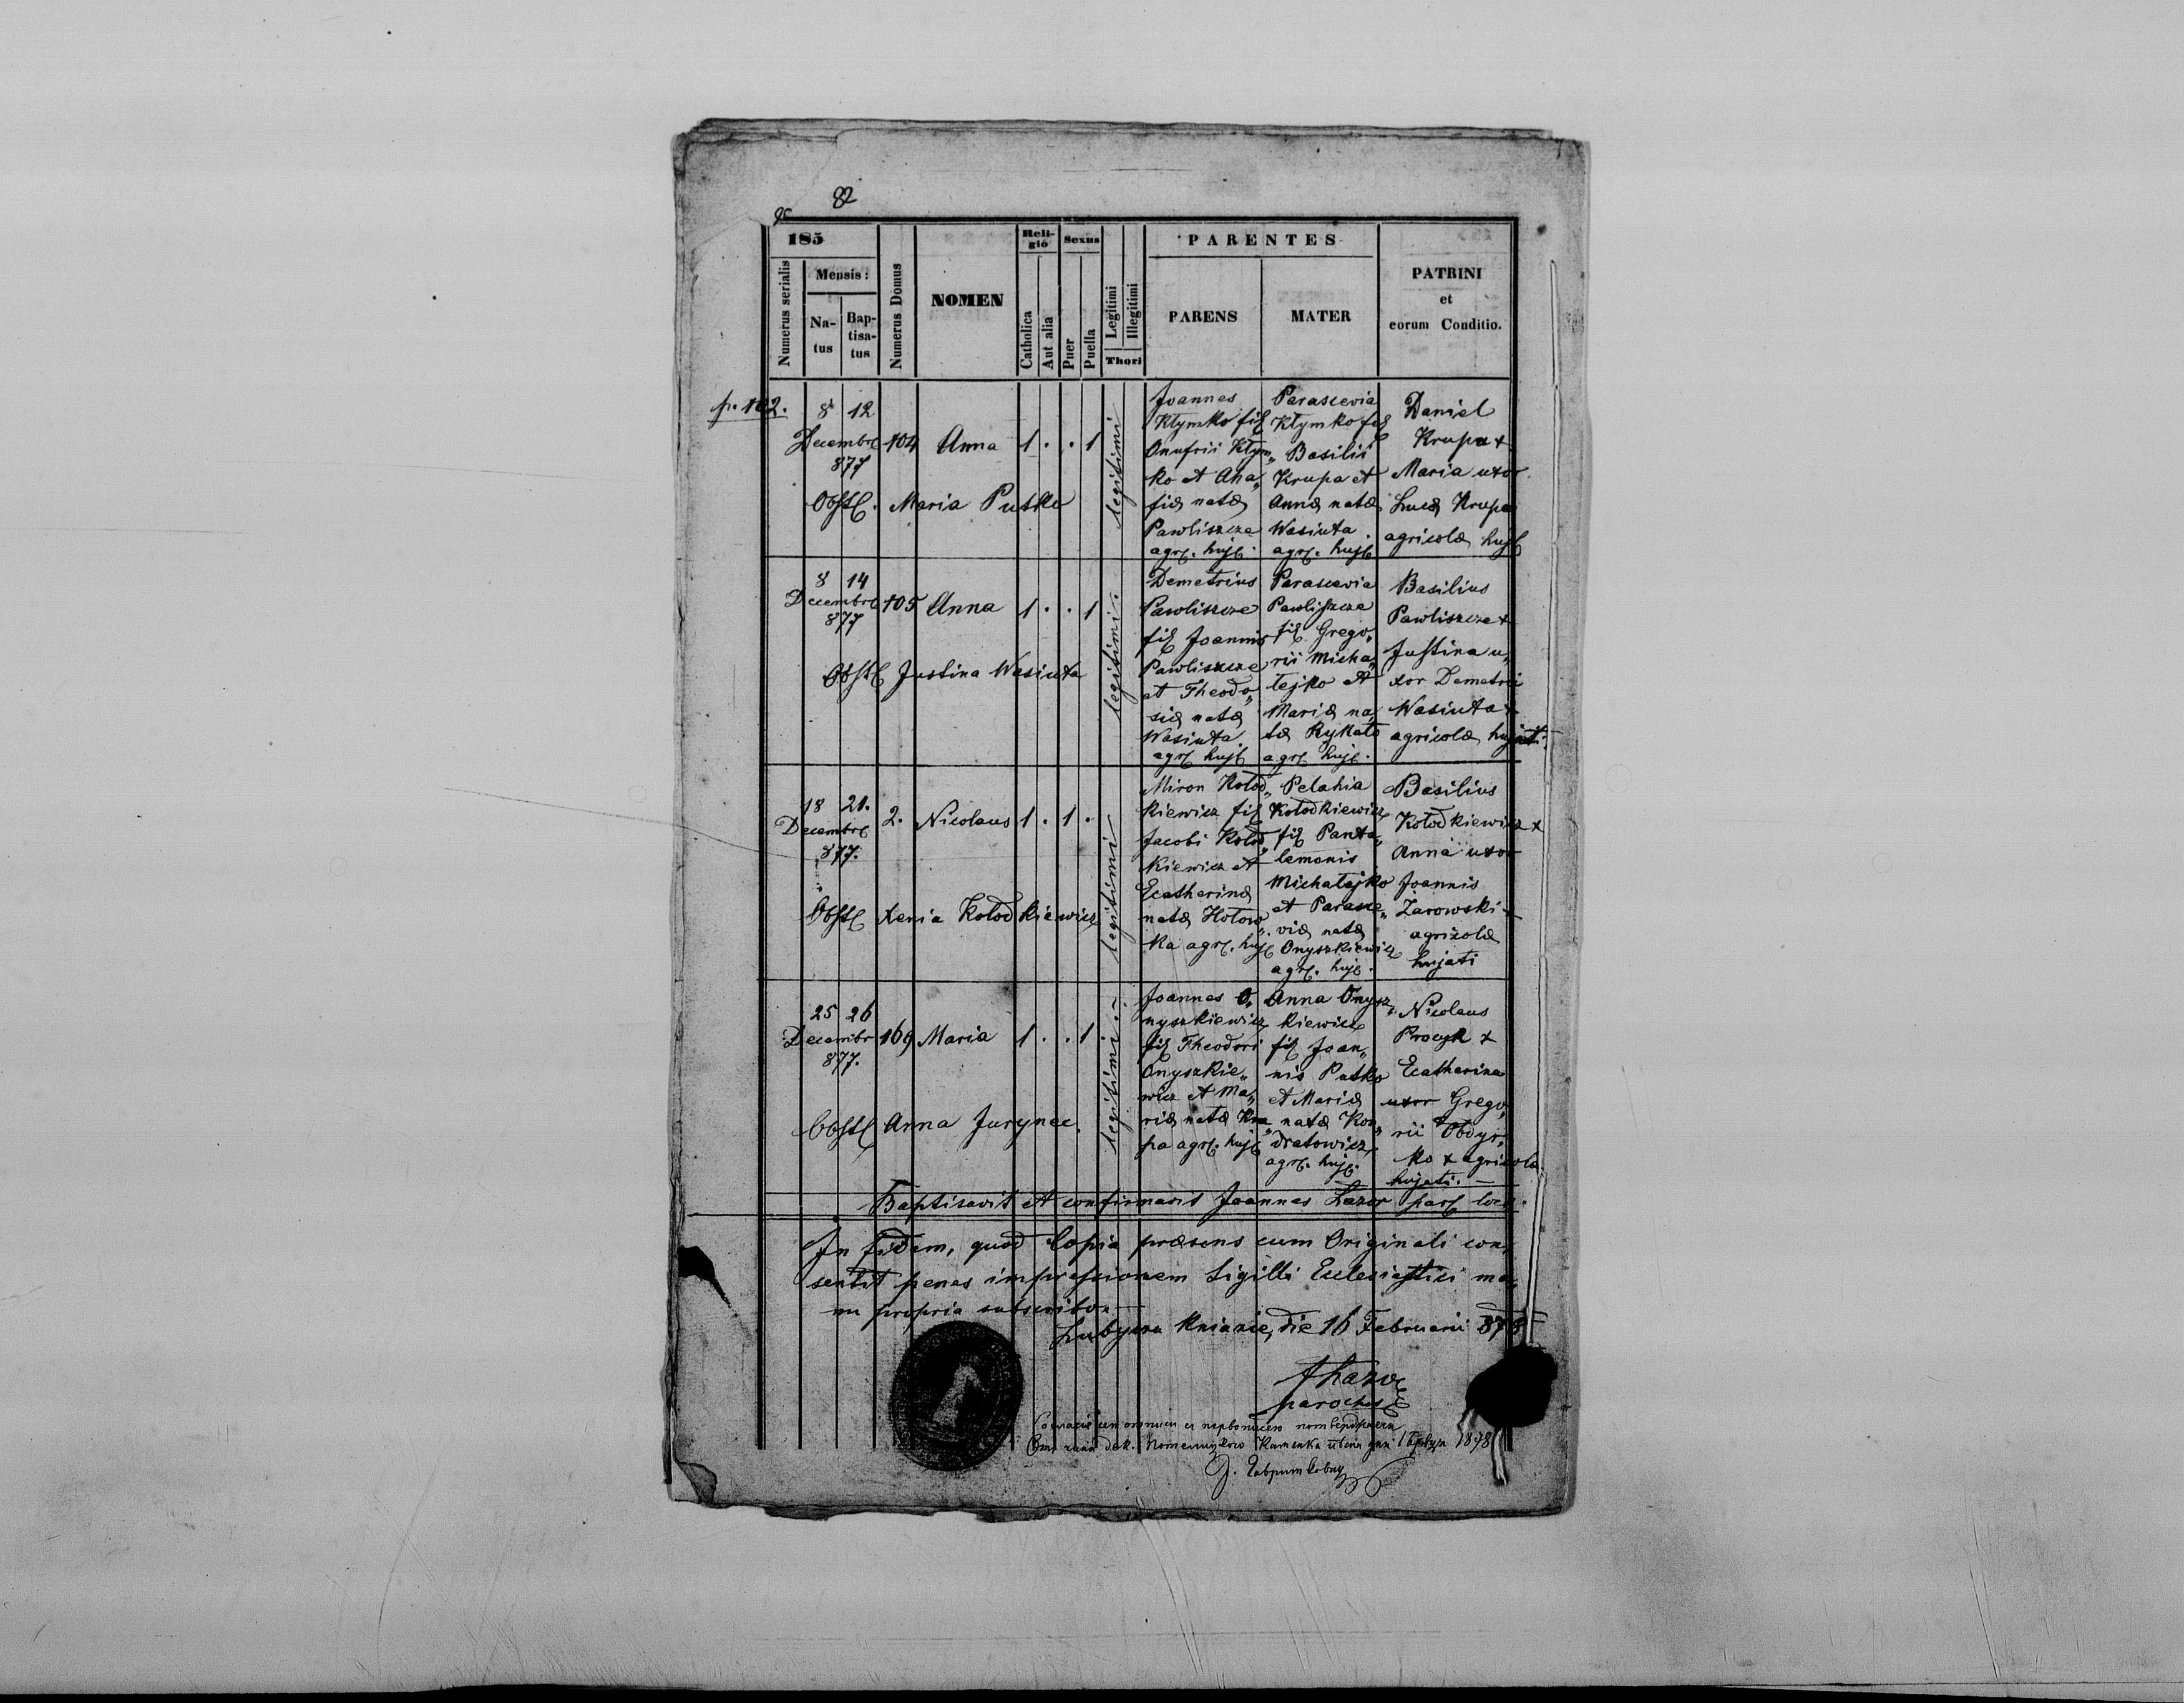 82
185
Numerus serialis
Mensis:
Na-
tus
Bap-
tisa-
tus
Numerus Domus
NOMEN
Reli-
gio
Catholica
Aut alia
Sexus
Puer
Puella
Legitimi
Illegitimi
Thori
PARENTES
PARENS
MATER
PATRINI
et
eorum Conditio.
p. 102.
8 12
Decembr
877
104 Anna 1 . . 1
legitimi
Obst. Maria Putko
Joannes
Kłymko fil
Onufrii Kłym„
ko et Aha„
fiæ natæ
Pawliszcze
agr. huj.
Parascevia
Kłymko fil
Basilii
Krupa et
Annæ natæ
Wasiuta
agr. huj
Daniel
Krupa +
Maria uxor
Lucæ Krupa
agricolæ huj
8 14
Decembr
877
105 Anna 1 . . 1
legitimi.
Obst Justina Wasiuta
Demetrius
Pawliszcze
fil Joannis
Pawliszcze
et Theodo„
siæ natæ
Wasiuta
agr huj
Parascevia
Pawliszcze
fil. Grego„
rii Micha„
łejko et
Mariæ na„
tæ Rykało
agr huj.
Basilius
Pawliszcze +
Justina u„
xor Demetrii
Wasiuta +
agricolæ hujati.
18 21.
Decembr
877.
2. Nicolaus 1 . 1 .
legitimi
Obst Xenia Kołodkiewicz
Miron Kołod„
kiewicz fil
Jacobi Kołod„
kiewicz et
Ecatherinæ
natæ Hołow„
ka agr. huj
Pelahia
Kołodkiewicz
fil Panta„
lemonis
Michałejko
et Parasce„
viæ natæ
Onyszkiewicz
agr. huj.
Basilius
Kołodkiewicz +
Anna uxor
Joannis
Żarowski +
agricolæ
hujati
25 26
Decembr
877.
169 Maria 1 . . 1 .
legitimi
Obst Anna Jurynec.
Joannes O„
nyszkiewicz
fil Theodori
Onyszkie„
wicz et Ma„
riæ natæ Kru„
pa agr. huj
Anna Onysz„
kiewicz
fil Joan„
nis Putko
et Mariæ
natæ Kon„
dratowicz
agr. huj.
Nicolaus
Procyk +
Ecatherina
uxor Grego„
rii Obdyr„
ko + agricola
hujati. —
Baptisavit et confirmavit Joannes Lazor par loci.
In fidem, quod Copia præsens cum Originali con„
sentit penes impressionem Sigilli Ecclesiastici ma„
nu propria subscribor —
Lubycza Kniazie, die 16 Februarii 878
JLazor
parochus
1878